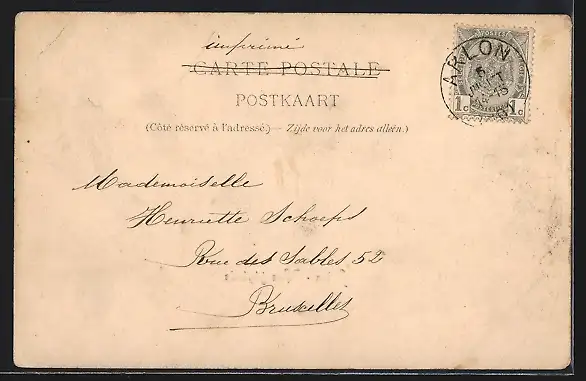 imprimé
CARTE POSTALE
POSTKAART
(Côté réservé à l'adresse.) — Zijde voor het adres alleen.)
ARLON
POSTES
1c 1c
Mademoiselle
Henriette Schoeps
Rue des Sables 52
Bruxelles